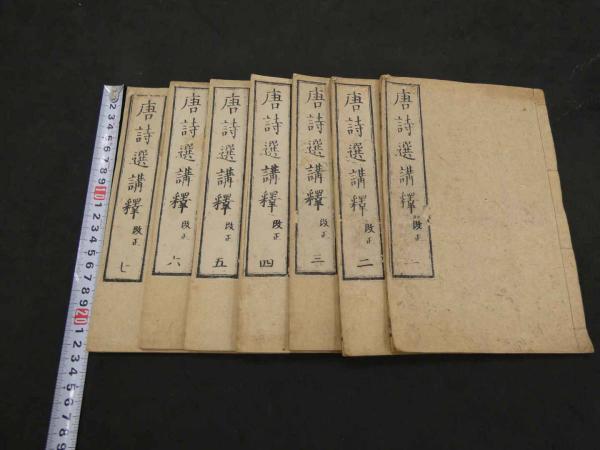 唐詩選講釋 改正 一
唐詩選講釋 改正 二
唐詩選講釋 改正 三
唐詩選講釋 改正 四
唐詩選講釋 改正 五
唐詩選講釋 改正 六
唐詩選講釋 改正 七
1 2 3 4 5 6 7 8 9 10 1 2 3 4 5 6 7 8 9 20 1 2 3 4 5 6 7 8 9